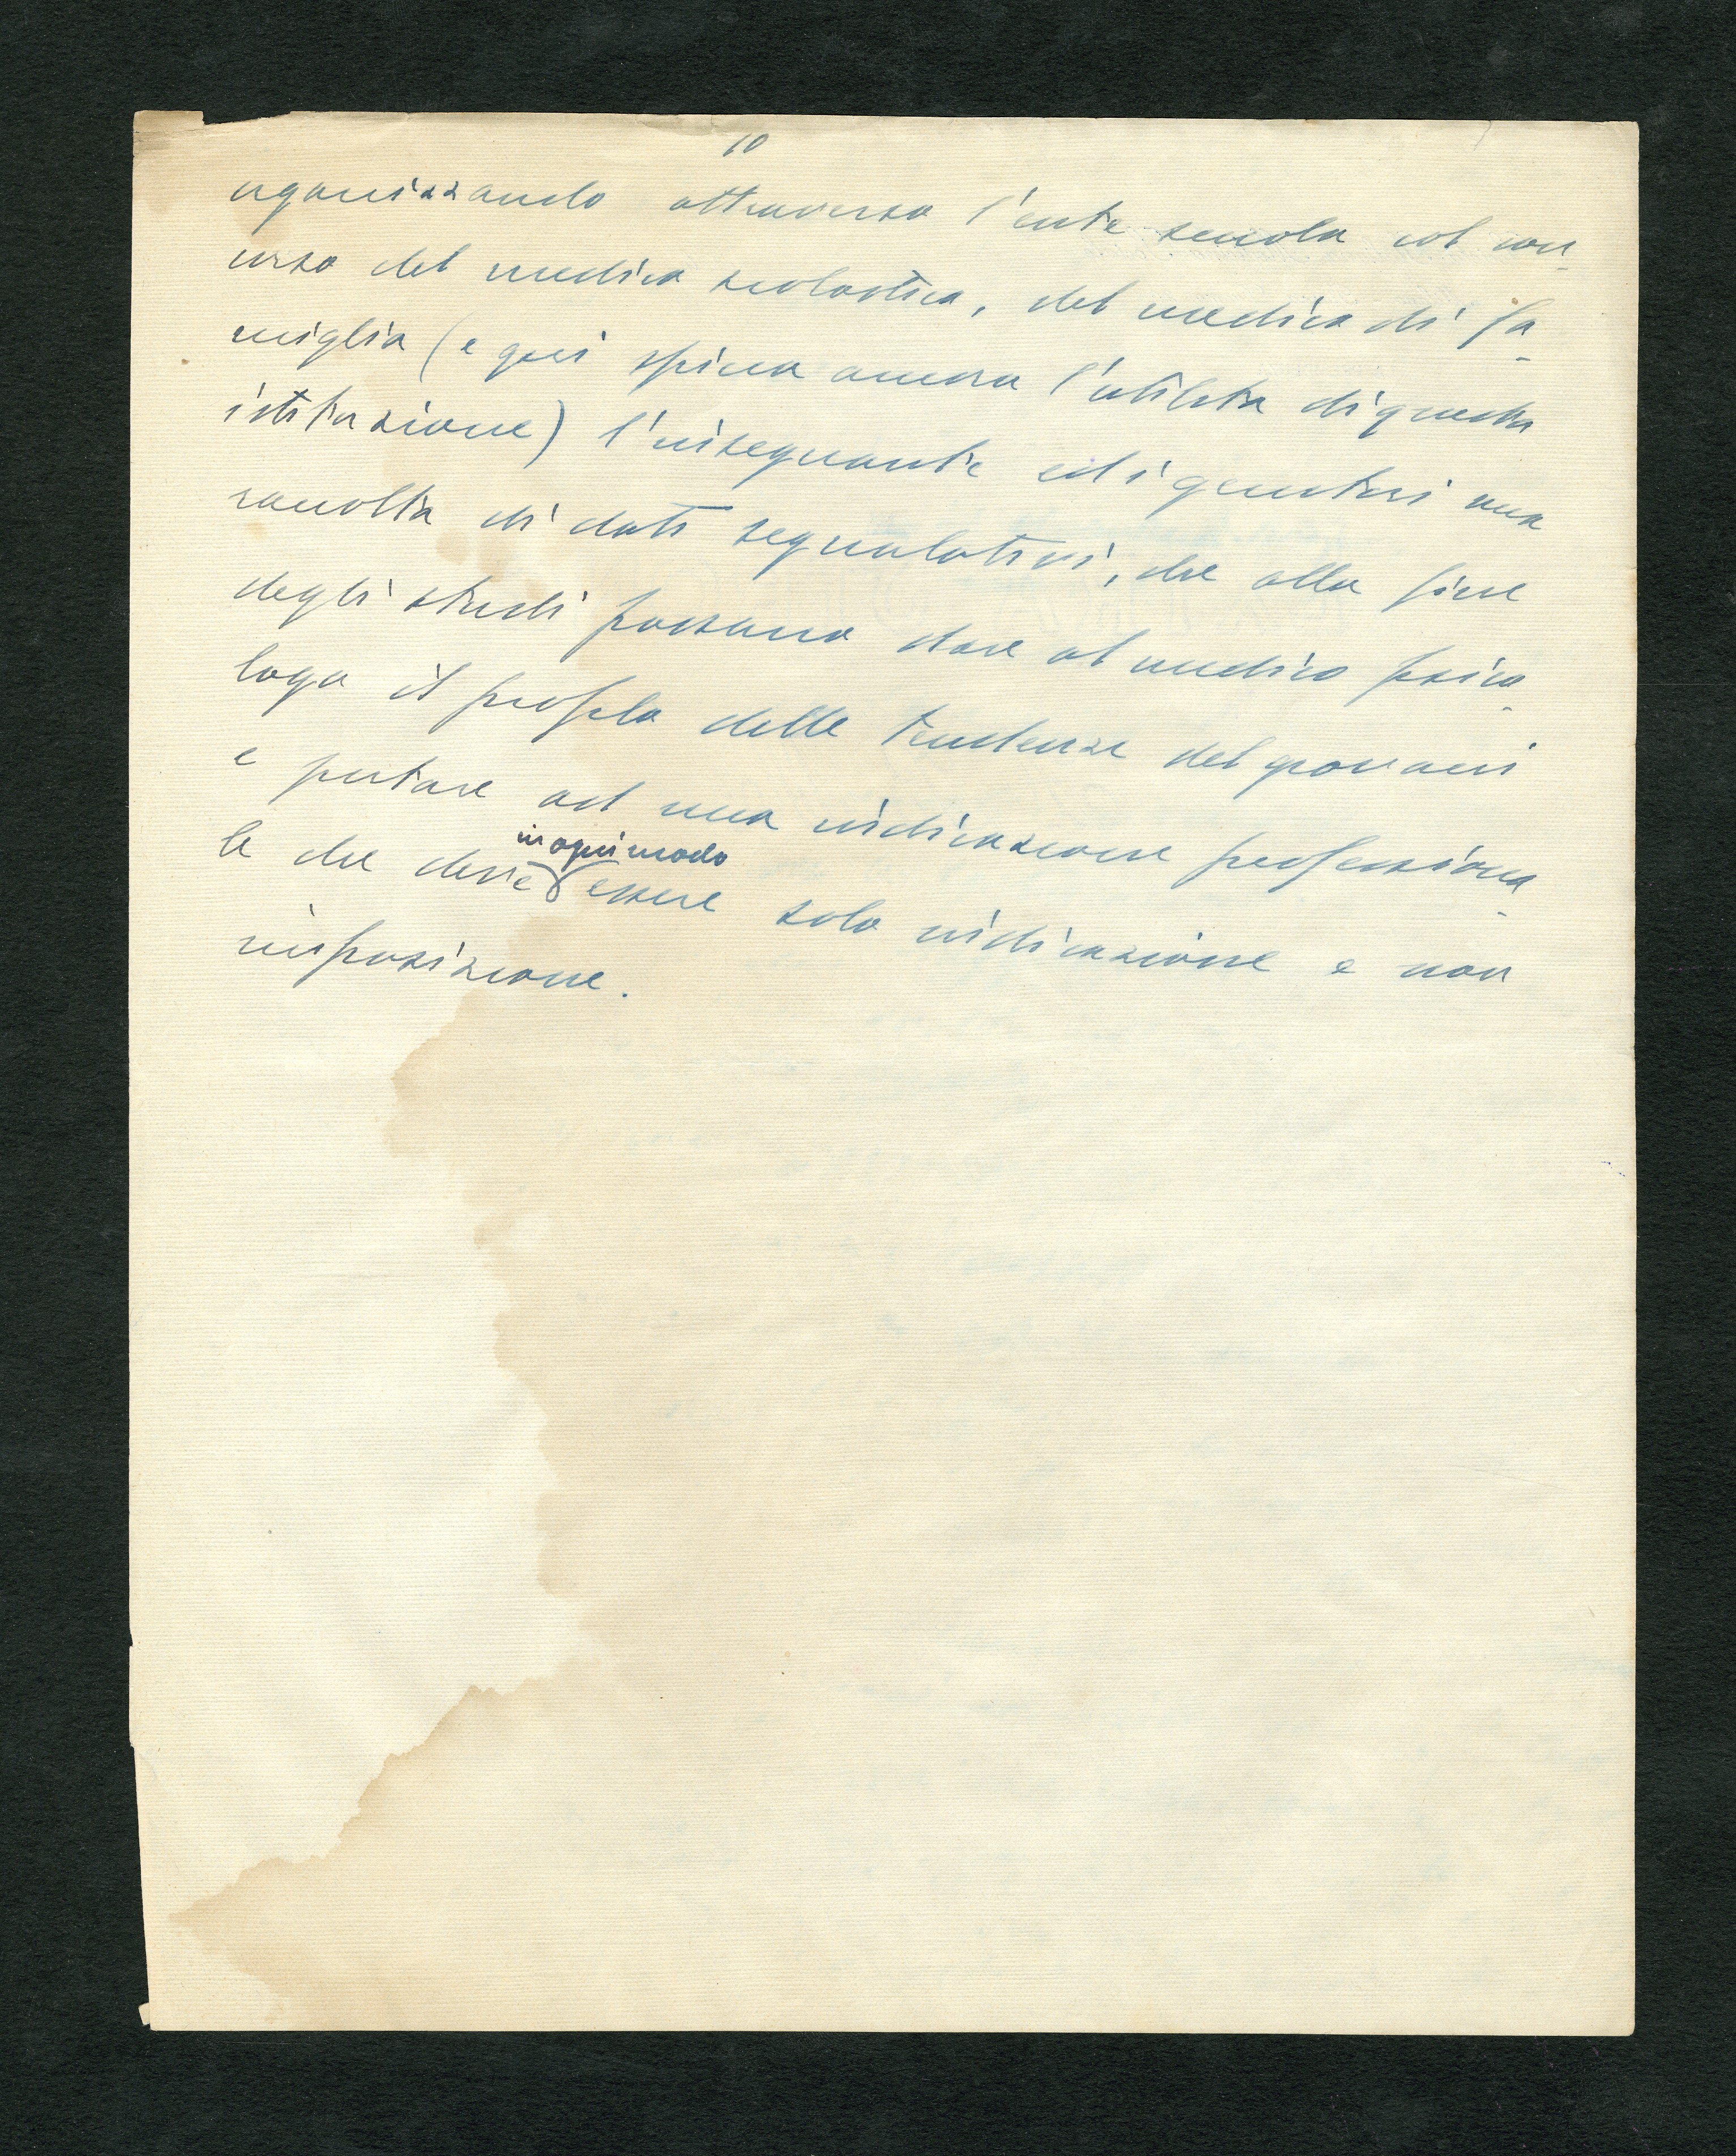 10
organizzando attraverso l'ente scuola col con-
corso del medico scolastico, del medico di fa-
miglia (e qui spicca ancora l'utilità di questa
istituzione) l'insegnante ed i genitori una
raccolta di dati segnalativi, che alla fine
degli studi possano dare al medico psico-
logo il profilo delle tendenze del giovani
e portare ad una indicazione professiona-
le che deve in ogni modo essere solo indicazione e non
imposizione.